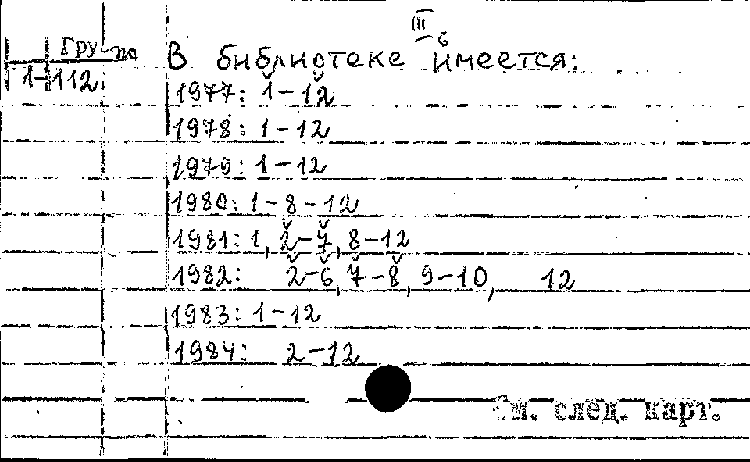 III
6
Гру-по В библиотеке имеется:
1-112
1977: 1-12
1978: 1-12
1979: 1-12
1980: 1-8-12
1981: 1, 2-7, 8-12
1982: 2-6, 7-8, 9-10, 12
1983: 1-12
1984: 2-12
См. след. карт.